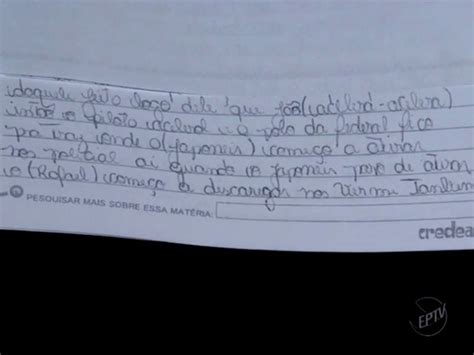 daquele jeito você dile que foã(acilerá-acilera)
intão o piloto acilerol e o polo da federal fico
pra traz onde o(japoneis) começo a atirar
nos policial ai quando o japoneis paro de atirar
o(Rafael) começo a discarregar nos Vermi
PESQUISAR MAIS SOBRE ESSA MATÉRIA:
credea
EPTV